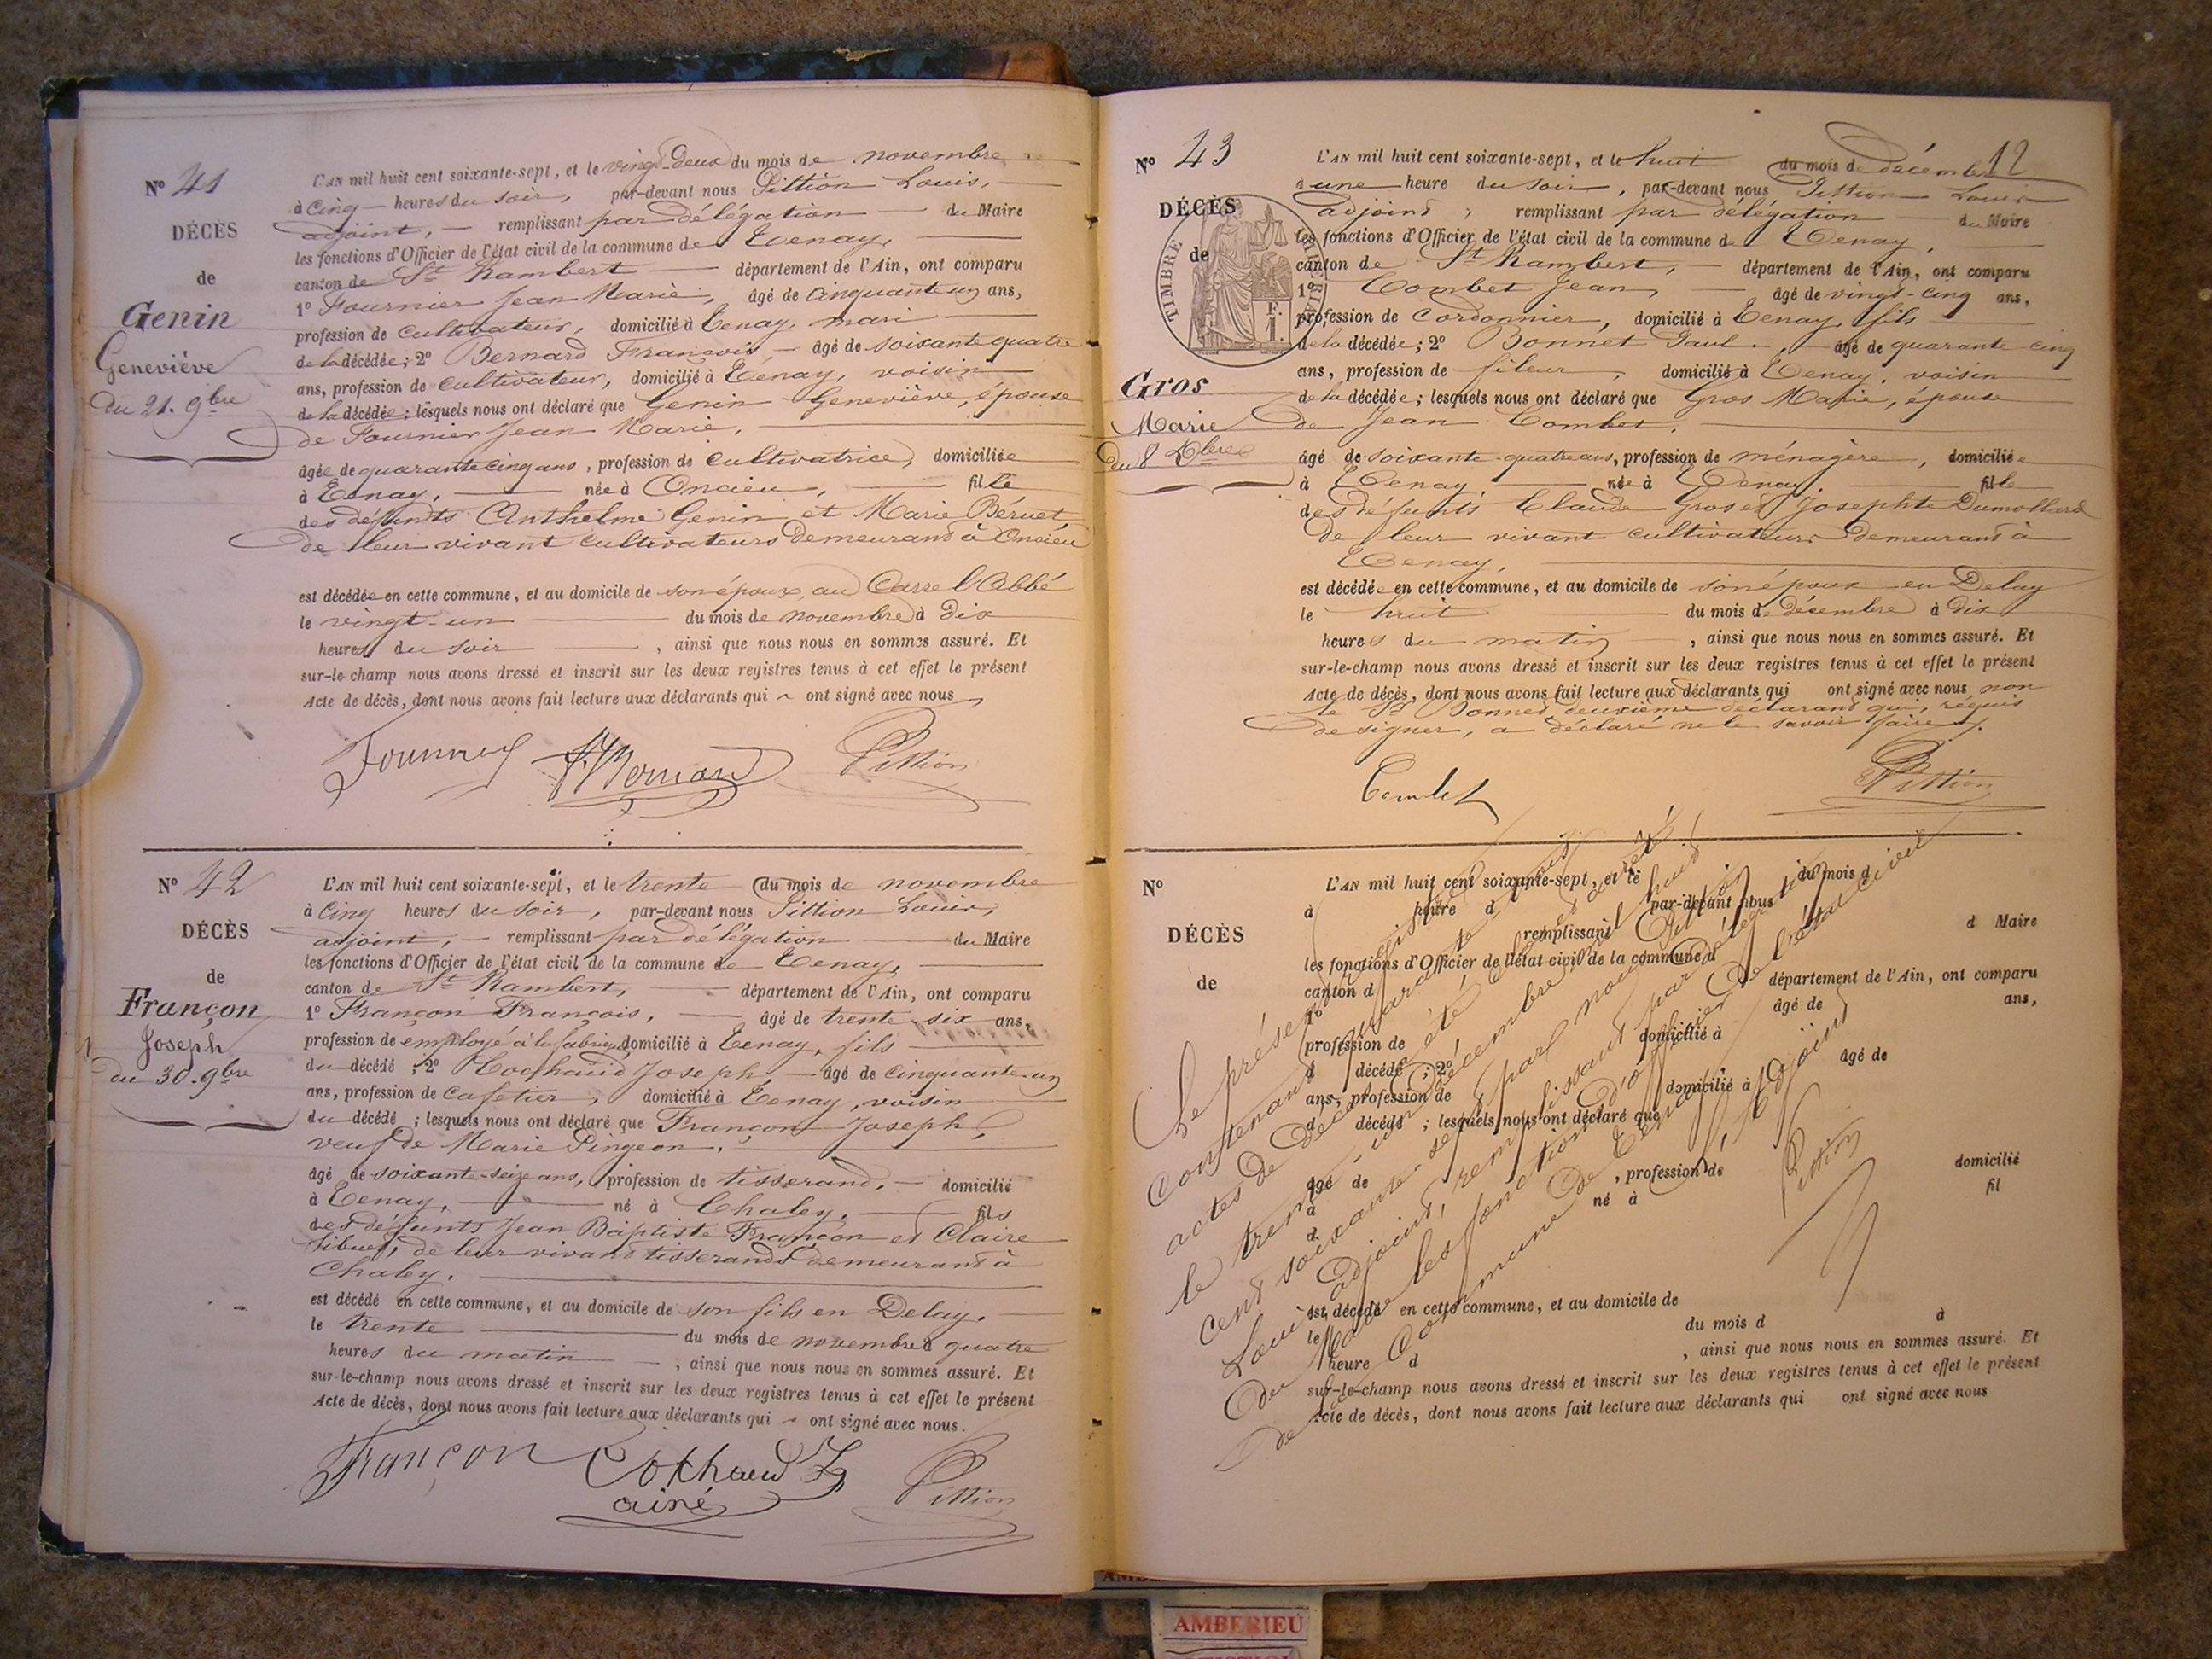 N° 41
DÉCÈS
de
Genin
Geneviève
du 21. 9bre
L'AN mil huit cent soixante-sept, et le vingt-Deux du mois de novembre
à cinq heures du soir, par-devant nous Pittion Louis,
adjoint, remplissant par délégation du Maire
les fonctions d'Officier de l'état civil de la commune de Tenay,
canton de St Rambert département de l'Ain, ont comparu
1° Fournier Jean Marie, âgé de cinquante un ans,
profession de cultivateur, domicilié à Tenay, mari
de la décédée; 2° Bernard François, âgé de soixante quatre
ans, profession de cultivateur, domicilié à Tenay, voisin
de la décédée; lesquels nous ont déclaré que Genin Geneviève, épouse
de Fournier Jean Marie,
âgée de quarante cinq ans, profession de cultivatrice, domiciliée
à Tenay, née à Oncieu, fille
des défunts Anthelme Genin et Marie Béruet,
de leur vivant cultivateurs demeurant à Oncieu
est décédée en cette commune, et au domicile de son époux, au Carre l'Abbé
le vingt-un du mois de novembre à dix
heures du soir, ainsi que nous nous en sommes assuré. Et
sur-le-champ nous avons dressé et inscrit sur les deux registres tenus à cet effet le présent
Acte de décès, dont nous avons fait lecture aux déclarants qui ont signé avec nous
Pittion
N° 42
DÉCÈS
de
Françon
Joseph
du 30. 9bre
L'AN mil huit cent soixante-sept, et le trente du mois de novembre
à cinq heures du soir, par-devant nous Pittion Louis,
adjoint, remplissant par délégation du Maire
les fonctions d'Officier de l'état civil de la commune de Tenay,
canton de St Rambert, département de l'Ain, ont comparu
1° Françon François, âgé de trente six ans,
profession de employé à la fabrique, domicilié à Tenay, fils
du décédé; 2° Cochaud Joseph, âgé de cinquante-un
ans, profession de cafetier, domicilié à Tenay, voisin
du décédé; lesquels nous ont déclaré que Françon Joseph,
veuf de Marie Pingeon,
âgé de soixante-seize ans, profession de tisserand, domicilié
à Tenay, né à Chaley, fils
des défunts Jean Baptiste Françon et Claire
de leur vivant tisserands demeurant à
Chaley.
est décédé en cette commune, et au domicile de son fils en Delay.
le trente du mois de novembre à quatre
heures du matin, ainsi que nous nous en sommes assuré. Et
sur-le-champ nous avons dressé et inscrit sur les deux registres tenus à cet effet le présent
Acte de décès, dont nous avons fait lecture aux déclarants qui ont signé avec nous.
Françon Cochaud J
ainé Pittion
12
N° 43
DÉCÈS
de
TIMBRE
F.
1.
Gros
Marie
du 8 Xbre
L'AN mil huit cent soixante-sept, et le huit du mois de décembre
à une heure du soir, par-devant nous Pittion Louis
adjoint, remplissant par délégation du Maire
les fonctions d'Officier de l'état civil de la commune de Tenay,
canton de St Rambert, département de l'Ain, ont comparu
1° Combet Jean, âgé de vingt-cinq ans,
profession de cordonnier, domicilié à Tenay, fils
de la décédée; 2° Bonnet Paul, âgé de quarante cinq
ans, profession de fileur, domicilié à Tenay, voisin
de la décédée; lesquels nous ont déclaré que Gros Marie, épouse
de Jean Combet,
âgé de soixante-quatre ans, profession de ménagère, domiciliée
à Tenay née à Tenay, fille
des défunts Claude Gros et Josephte Dumollard
de leur vivant cultivateurs demeurant à
Tenay,
est décédée en cette commune, et au domicile de son époux en Delay
le huit du mois de décembre à dix
heures du matin, ainsi que nous nous en sommes assuré. Et
sur-le-champ nous avons dressé et inscrit sur les deux registres tenus à cet effet le présent
Acte de décès, dont nous avons fait lecture aux déclarants qui ont signé avec nous non
le Sr Bonnet deuxième déclarant qui, requis
de signer, a déclaré ne le savoir faire.
Combet Pittion
N°
DÉCÈS
de
L'AN mil huit cent soixante-sept, et le du mois d
à heure d par-devant nous
remplissant d Maire
les fonctions d'Officier de l'état civil de la commune d
canton d département de l'Ain, ont comparu
1° âgé de ans,
profession de domicilié à
d décédé ; 2° âgé de
ans, profession de domicilié à
d décédé ; lesquels nous ont déclaré que
âgé de , profession de domicilié
à né à fil
d
est décédé en cette commune, et au domicile de
le du mois d à
heure d , ainsi que nous nous en sommes assuré. Et
sur-le-champ nous avons dressé et inscrit sur les deux registres tenus à cet effet le présent
Acte de décès, dont nous avons fait lecture aux déclarants qui ont signé avec nous
Le présent registre
contenant quarante trois
actes de décès a été clos et arrêté
le trente un décembre mil huit
cent soixante-sept par nous Pittion
Louis adjoint, remplissant par délégation
du Maire les fonctions d'officier de l'état civil
de la Commune de Tenay.
L'adjoint
Pittion
AMBERIEU